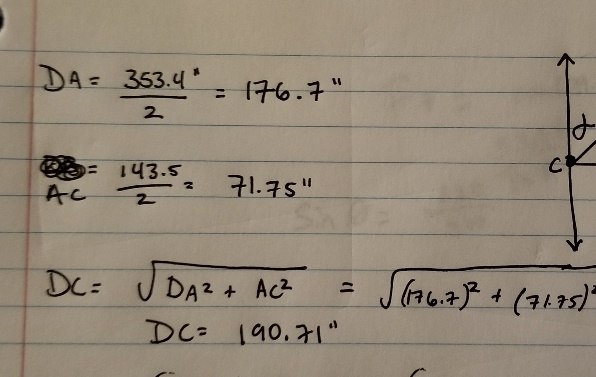 DA = 353.4" / 2 = 176.7"
= 143.5 / 2 = 71.75"
AC
C
DC = √(DA² + AC²) = √((176.7)² + (71.75)²
DC = 190.71"